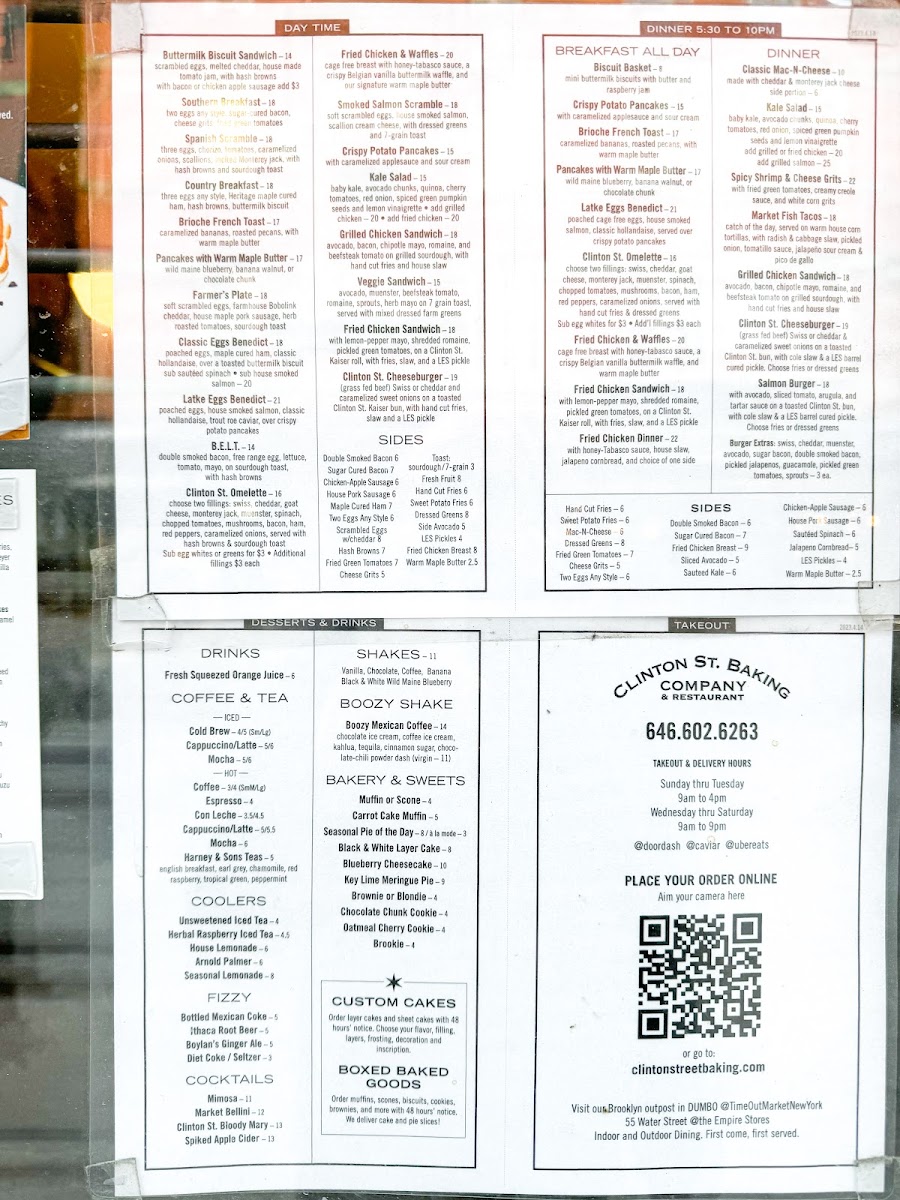 DAY TIME
Buttermilk Biscuit Sandwich – 14
scrambled eggs, melted cheddar, house made
tomato jam, with hash browns
with bacon or chicken apple sausage add $3
Southern Breakfast – 18
two eggs any style, sugar cured bacon,
cheese grits, fried green tomatoes
Spanish Scramble – 18
three eggs, chorizo, tomatoes, caramelized
onions, scallions, melted Monterey jack, with
hash browns and sourdough toast
Country Breakfast – 18
three eggs any style, Heritage maple cured
ham, hash browns, buttermilk biscuit
Brioche French Toast – 17
caramelized bananas, roasted pecans, with
warm maple butter
Pancakes with Warm Maple Butter – 17
wild maine blueberry, banana walnut, or
chocolate chunk
Farmer's Plate – 18
soft scrambled eggs, farmhouse Bobolink
cheddar, house maple pork sausage, herb
roasted tomatoes, sourdough toast
Classic Eggs Benedict – 18
poached eggs, maple cured ham, classic
hollandaise, over a toasted buttermilk biscuit
sub sautéed spinach • sub house smoked
salmon – 20
Latke Eggs Benedict – 21
poached eggs, house smoked salmon, classic
hollandaise, trout roe caviar, over crispy
potato pancakes
B.E.L.T. – 14
double smoked bacon, free range egg, lettuce,
tomato, mayo, on sourdough toast,
with hash browns
Clinton St. Omelette – 16
choose two fillings: swiss, cheddar, goat
cheese, monterey jack, muenster, spinach,
chopped tomatoes, mushrooms, bacon, ham,
red peppers, caramelized onions, served with
hash browns & sourdough toast
Sub egg whites or greens for $3 • Additional
fillings $3 each
Fried Chicken & Waffles – 20
cage free breast with honey-tabasco sauce, a
crispy Belgian vanilla buttermilk waffle, and
our signature warm maple butter
Smoked Salmon Scramble – 18
soft scrambled eggs, house smoked salmon,
scallion cream cheese, with dressed greens
and 7-grain toast
Crispy Potato Pancakes – 15
with caramelized applesauce and sour cream
Kale Salad – 15
baby kale, avocado chunks, quinoa, cherry
tomatoes, red onion, spiced green pumpkin
seeds and lemon vinaigrette • add grilled
chicken – 20 • add fried chicken – 20
Grilled Chicken Sandwich – 18
avocado, bacon, chipotle mayo, romaine, and
beefsteak tomato on grilled sourdough, with
hand cut fries and house slaw
Veggie Sandwich – 15
avocado, muenster, beefsteak tomato,
romaine, sprouts, herb mayo on 7 grain toast,
served with mixed dressed farm greens
Fried Chicken Sandwich – 18
with lemon-pepper mayo, shredded romaine,
pickled green tomatoes, on a Clinton St.
Kaiser roll, with fries, slaw, and a LES pickle
Clinton St. Cheeseburger – 19
(grass fed beef) Swiss or cheddar and
caramelized sweet onions on a toasted
Clinton St. Kaiser bun, with hand cut fries,
slaw and a LES pickle
SIDES
Double Smoked Bacon 6
Sugar Cured Bacon 7
Chicken-Apple Sausage 6
House Pork Sausage 6
Maple Cured Ham 7
Two Eggs Any Style 6
Scrambled Eggs
w/cheddar 8
Hash Browns 7
Fried Green Tomatoes 7
Cheese Grits 5
Toast:
sourdough/7-grain 3
Fresh Fruit 8
Hand Cut Fries 6
Sweet Potato Fries 6
Dressed Greens 8
Side Avocado 5
LES Pickles 4
Fried Chicken Breast 8
Warm Maple Butter 2.5
DINNER 5:30 TO 10PM
2023.4.18
BREAKFAST ALL DAY
Biscuit Basket – 8
mini buttermilk biscuits with butter and
raspberry jam
Crispy Potato Pancakes – 15
with caramelized applesauce and sour cream
Brioche French Toast – 17
caramelized bananas, roasted pecans, with
warm maple butter
Pancakes with Warm Maple Butter – 17
wild maine blueberry, banana walnut, or
chocolate chunk
Latke Eggs Benedict – 21
poached cage free eggs, house smoked
salmon, classic hollandaise, served over
crispy potato pancakes
Clinton St. Omelette – 16
choose two fillings: swiss, cheddar, goat
cheese, monterey jack, muenster, spinach,
chopped tomatoes, mushrooms, bacon, ham,
red peppers, caramelized onions, served with
hand cut fries & dressed greens
Sub egg whites for $3 • Add'l fillings $3 each
Fried Chicken & Waffles – 20
cage free breast with honey-tabasco sauce, a
crispy Belgian vanilla buttermilk waffle, and
warm maple butter
Fried Chicken Sandwich – 18
with lemon-pepper mayo, shredded romaine,
pickled green tomatoes, on a Clinton St.
Kaiser roll, with fries, slaw, and a LES pickle
Fried Chicken Dinner – 22
with honey-Tabasco sauce, house slaw,
jalapeno cornbread, and choice of one side
DINNER
Classic Mac-N-Cheese – 10
made with cheddar & monterey jack cheese
side portion – 6
Kale Salad – 15
baby kale, avocado chunks, quinoa, cherry
tomatoes, red onion, spiced green pumpkin
seeds and lemon vinaigrette
add grilled or fried chicken – 20
add grilled salmon – 25
Spicy Shrimp & Cheese Grits – 22
with fried green tomatoes, creamy creole
sauce, and white corn grits
Market Fish Tacos – 18
catch of the day, served on warm house corn
tortillas, with radish & cabbage slaw, pickled
onion, tomatillo sauce, jalapeño sour cream &
pico de gallo
Grilled Chicken Sandwich – 18
avocado, bacon, chipotle mayo, romaine, and
beefsteak tomato on grilled sourdough, with
hand cut fries and house slaw
Clinton St. Cheeseburger – 19
(grass fed beef) Swiss or cheddar &
caramelized sweet onions on a toasted
Clinton St. bun, with cole slaw & a LES barrel
cured pickle. Choose fries or dressed greens
Salmon Burger – 18
with avocado, sliced tomato, arugula, and
tartar sauce on a toasted Clinton St. bun,
with cole slaw & a LES barrel cured pickle.
Choose fries or dressed greens
Burger Extras: swiss, cheddar, muenster,
avocado, sugar bacon, double smoked bacon,
pickled jalapenos, guacamole, pickled green
tomatoes, sprouts – 3 ea.
Hand Cut Fries – 6
Sweet Potato Fries – 6
Mac-N-Cheese – 6
Dressed Greens – 8
Fried Green Tomatoes – 7
Cheese Grits – 5
Two Eggs Any Style – 6
SIDES
Double Smoked Bacon – 6
Sugar Cured Bacon – 7
Fried Chicken Breast – 9
Sliced Avocado – 5
Sauteed Kale – 6
Chicken-Apple Sausage – 6
House Pork Sausage – 6
Sautéed Spinach – 6
Jalapeno Cornbread – 5
LES Pickles – 4
Warm Maple Butter – 2.5
DESSERTS & DRINKS
DRINKS
Fresh Squeezed Orange Juice – 6
COFFEE & TEA
— ICED —
Cold Brew – 4/5 (Sm/Lg)
Cappuccino/Latte – 5/6
Mocha – 5/6
— HOT —
Coffee – 3/4 (SmM/Lg)
Espresso – 4
Con Leche – 3.5/4.5
Cappuccino/Latte – 5/5.5
Mocha – 6
Harney & Sons Teas – 5
english breakfast, earl grey, chamomile, red
raspberry, tropical green, peppermint
COOLERS
Unsweetened Iced Tea – 4
Herbal Raspberry Iced Tea – 4.5
House Lemonade – 6
Arnold Palmer – 6
Seasonal Lemonade – 8
FIZZY
Bottled Mexican Coke – 5
Ithaca Root Beer – 5
Boylan's Ginger Ale – 5
Diet Coke / Seltzer – 3
COCKTAILS
Mimosa – 11
Market Bellini – 12
Clinton St. Bloody Mary – 13
Spiked Apple Cider – 13
SHAKES – 11
Vanilla, Chocolate, Coffee, Banana
Black & White Wild Maine Blueberry
BOOZY SHAKE
Boozy Mexican Coffee – 14
chocolate ice cream, coffee ice cream,
kahlua, tequila, cinnamon sugar, choco-
late-chili powder dash (virgin – 11)
BAKERY & SWEETS
Muffin or Scone – 4
Carrot Cake Muffin – 5
Seasonal Pie of the Day – 8 / à la mode – 3
Black & White Layer Cake – 8
Blueberry Cheesecake – 10
Key Lime Meringue Pie – 9
Brownie or Blondie – 4
Chocolate Chunk Cookie – 4
Oatmeal Cherry Cookie – 4
Brookie – 4
CUSTOM CAKES
Order layer cakes and sheet cakes with 48
hours' notice. Choose your flavor, filling,
layers, frosting, decoration and
inscription.
BOXED BAKED
GOODS
Order muffins, scones, biscuits, cookies,
brownies, and more with 48 hours' notice.
We deliver cake and pie slices!
TAKEOUT
2023.4.18
CLINTON ST. BAKING
COMPANY
& RESTAURANT
646.602.6263
TAKEOUT & DELIVERY HOURS
Sunday thru Tuesday
9am to 4pm
Wednesday thru Saturday
9am to 9pm
@doordash @caviar @ubereats
PLACE YOUR ORDER ONLINE
Aim your camera here
or go to:
clintonstreetbaking.com
Visit our Brooklyn outpost in DUMBO @TimeOutMarketNewYork
55 Water Street @the Empire Stores
Indoor and Outdoor Dining. First come, first served.